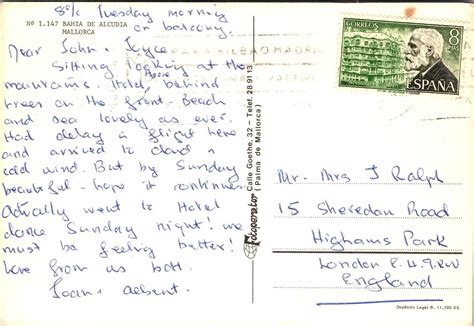 Nº 1.147 BAHIA DE ALCUDIA
MALLORCA
8th Tuesday morning
on balcony
Dear John + Joyce
Sitting looking at the
mountains. Hotel behind
trees on the front. Beach
and sea lovely as ever.
Had delay in flight here
and arrived to cloud +
cold wind. But by Sunday
beautiful - hope it continues
Actually went to Hotel
dance Sunday night! we
must be feeling better!
love from us both
Joan + 
Fotoperator
Calle Goethe, 32 - Telf. 289113
(Palma de Mallorca)
CORREOS
8 PTAS
ESPAÑA
Mr. Mrs J Ralph
15 Sheredan Road
Highams Park
London E.4.9.
England
Depósito Legal B.